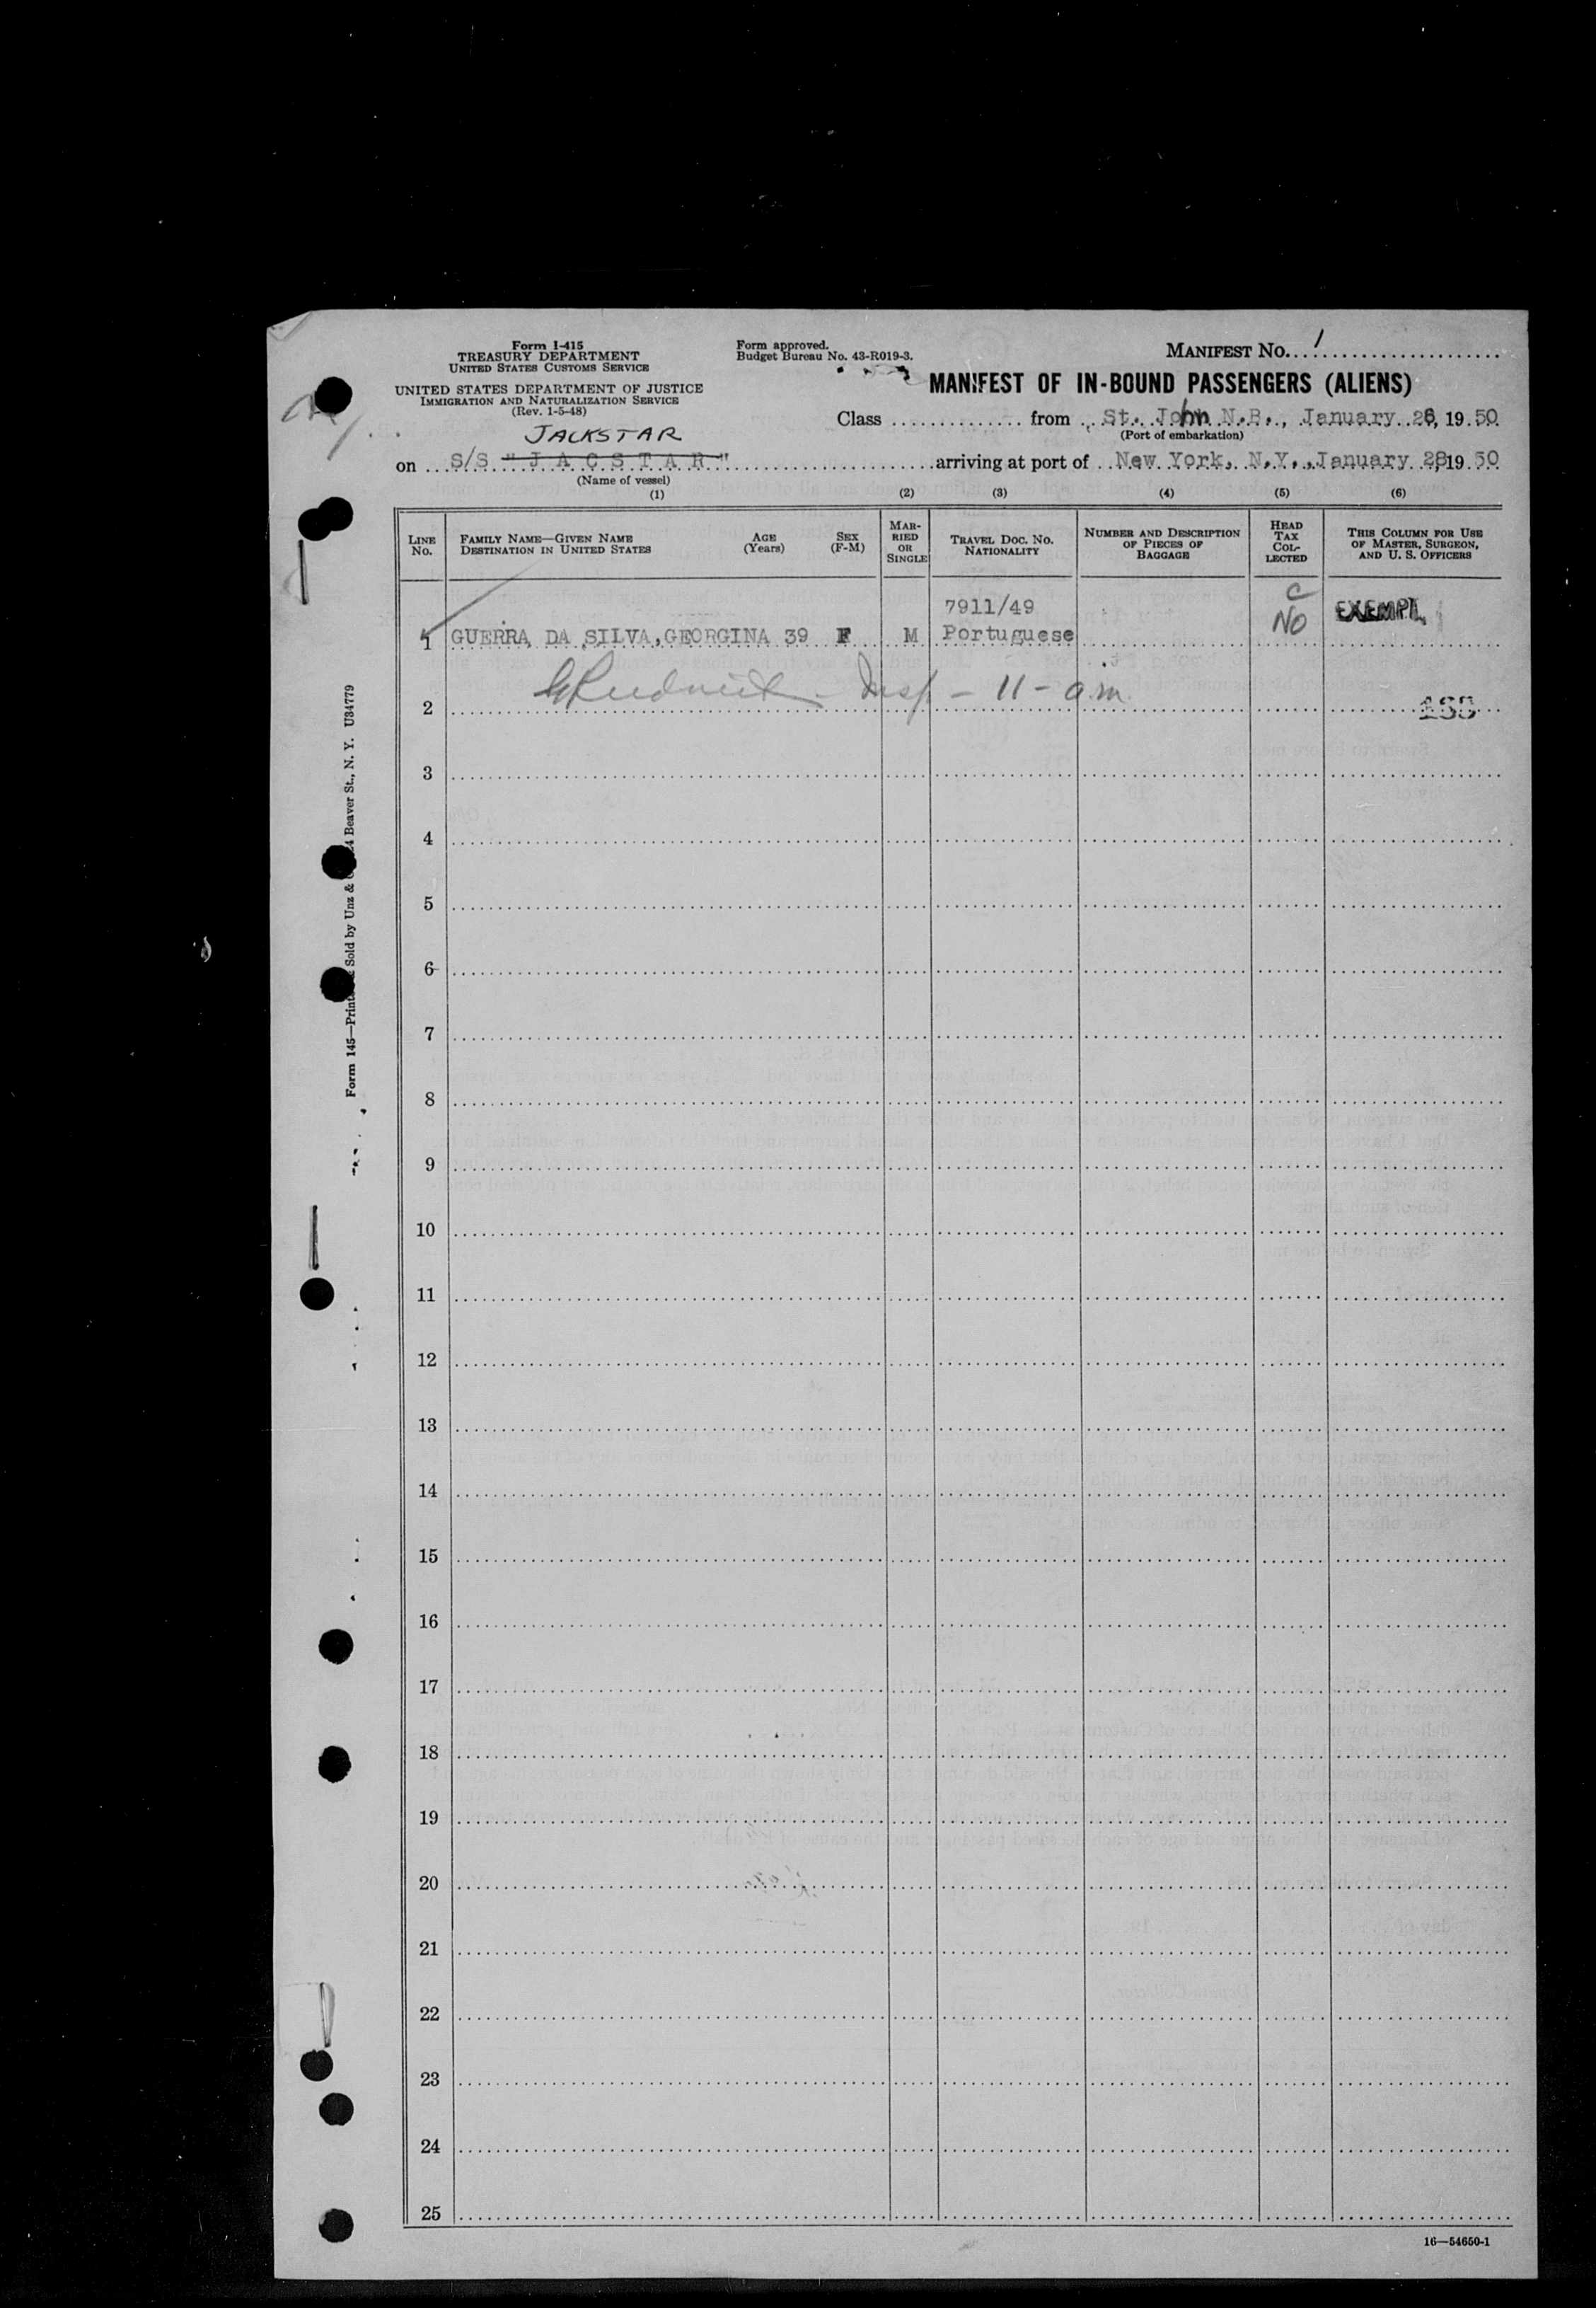 Form I-415
TREASURY DEPARTMENT
UNITED STATES CUSTOMS SERVICE
UNITED STATES DEPARTMENT OF JUSTICE
IMMIGRATION AND NATURALIZATION SERVICE
(Rev. 1-5-48)
Form approved.
Budget Bureau No. 43-R019-3.
MANIFEST No. 1
MANIFEST OF IN-BOUND PASSENGERS (ALIENS)
Class from St. John N.B., January 26, 19 50
(Port of embarkation)
JACKSTAR
on S/S "J A C S T A R" arriving at port of New York, N.Y., January 28 19 50
(Name of vessel)
(1) (2) (3) (4) (5) (6)
LINE No.
FAMILY NAME—GIVEN NAME
DESTINATION IN UNITED STATES
AGE (Years)
SEX (F-M)
MARRIED OR SINGLE
TRAVEL DOC. NO. NATIONALITY
NUMBER AND DESCRIPTION OF PIECES OF BAGGAGE
HEAD TAX COLLECTED
THIS COLUMN FOR USE OF MASTER, SURGEON, AND U. S. OFFICERS
7911/49 C EXEMPT
1 GUERRA DA SILVA, GEORGINA 39 F M Portuguese NO
Insp - 11 - a.m.
2
3
4
5
6
7
8
9
10
11
12
13
14
15
16
17
18
19
20
21
22
23
24
25
16—54650-1
Form 145—Printed & Sold by Unz & 24 Beaver St., N. Y. U34779